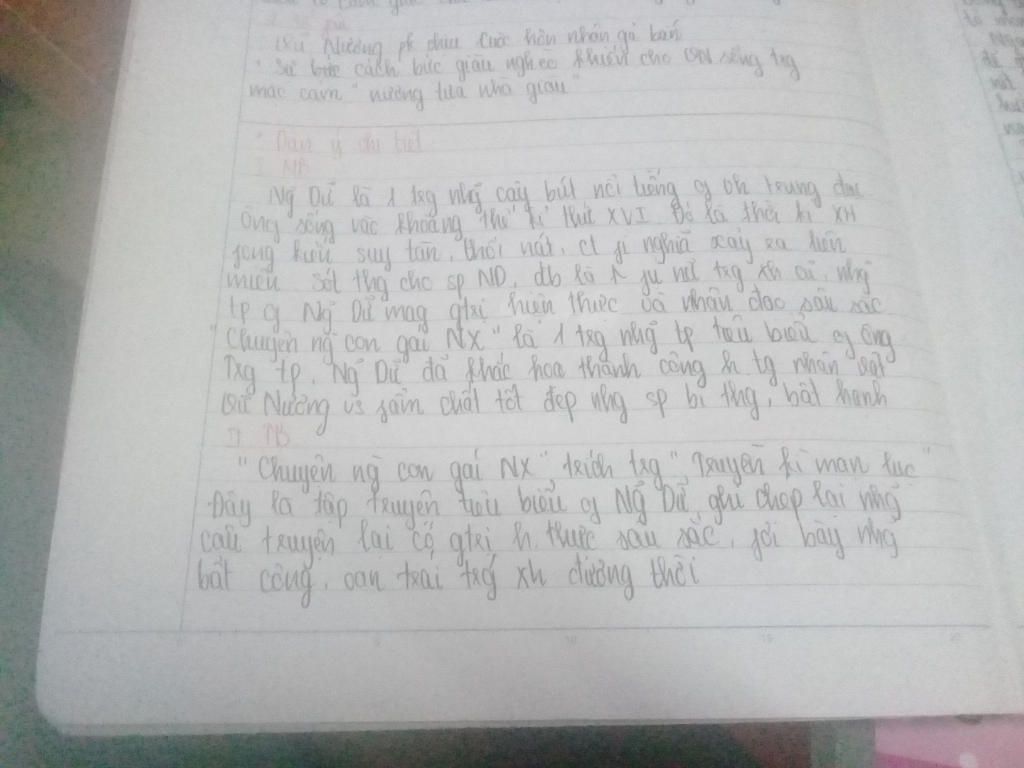 Vũ Nương pk chịu cuộc hôn nhân gả bán
Sự bức cách bức giàu nghèo khiến cho VN sống trg
mặc cảm "nương tựa nhà giàu"
* Dàn ý chi tiết
I MB
Ng Dữ là 1 trg nhg cây bút nổi tiếng of vh trung đại
Ông sống vào khoảng thế kỉ thứ XVI. Đó là thời kì XH
fong kiến suy tàn, thối nát, ct fi nghĩa xảy ra liên
miên. Sót thg cho sp ND, đb là ng fụ nữ trg xh cũ, nhg
tp of Ng Dữ mag gtrị hiện thực và nhân đạo sâu sắc
"Chuyện ng con gái NX" là 1 trg nhg tp tiêu biểu of ông
Trg tp, Ng Dữ đã khắc hoạ thành công h tg nhân vật
Vũ Nương vs fẩm chất tốt đẹp nhg sp bi thg, bất hạnh
II TB
"Chuyện ng con gái NX" trích trg "Truyền kì mạn lục"
Đây là tập truyện tiêu biểu of Ng Dữ, ghi chép lại nhg
câu truyện lại có gtrị h. thực sâu sắc, fơi bày nhg
bất công, oan trái trg xh đương thời